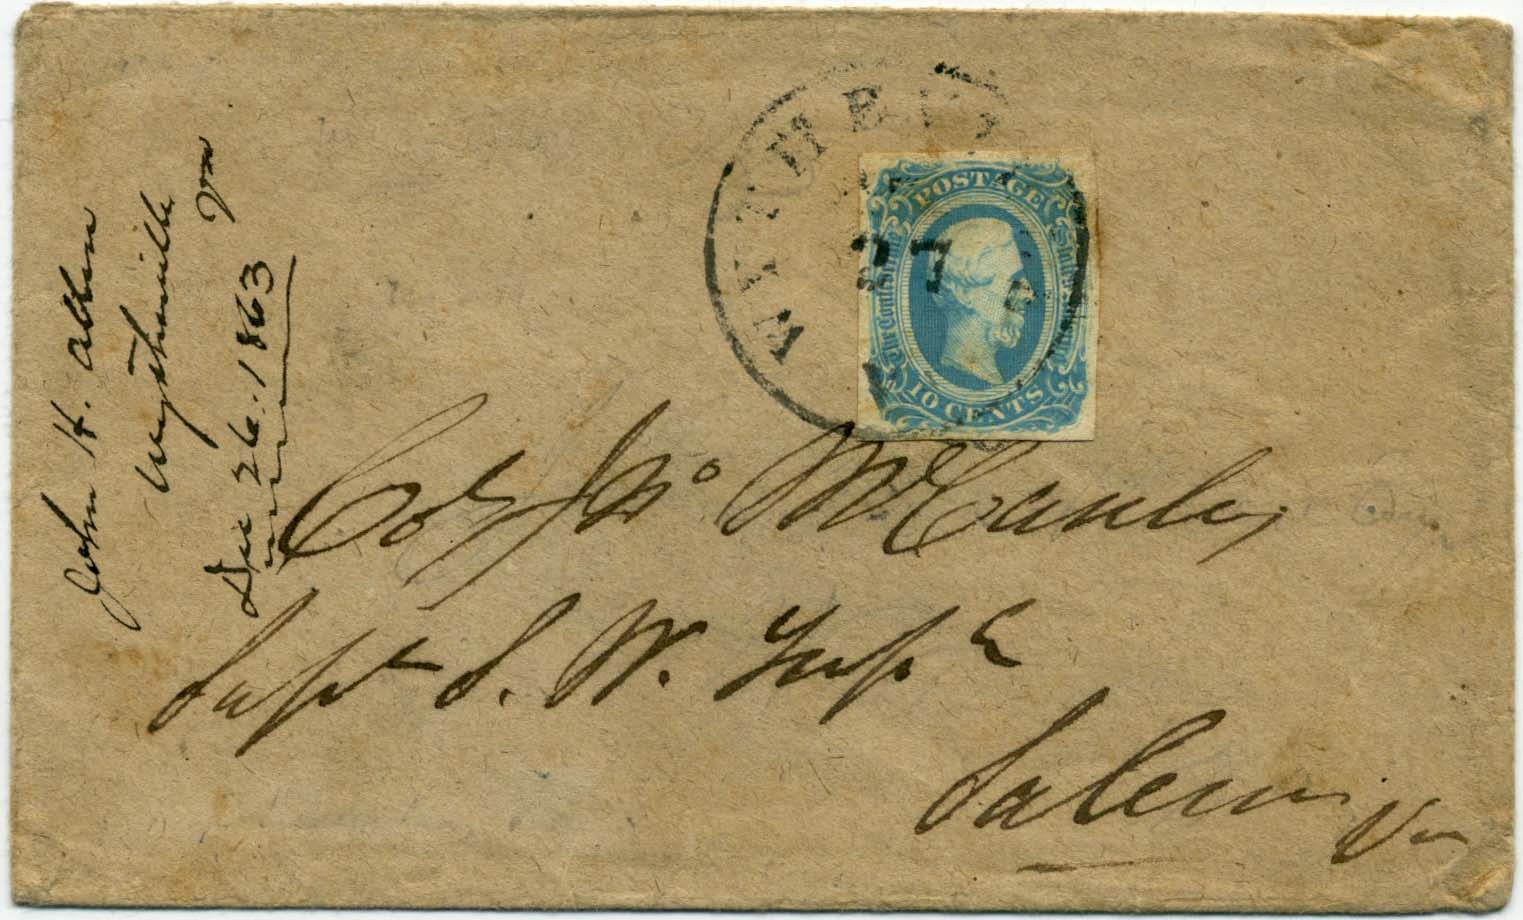 John H.
Wytheville Va
Dec 26. 1863
WYTHEVI
27
POSTAGE
The Confederate States
10 CENTS
Col Jno McCauley
Supt S. W.
Salem Va